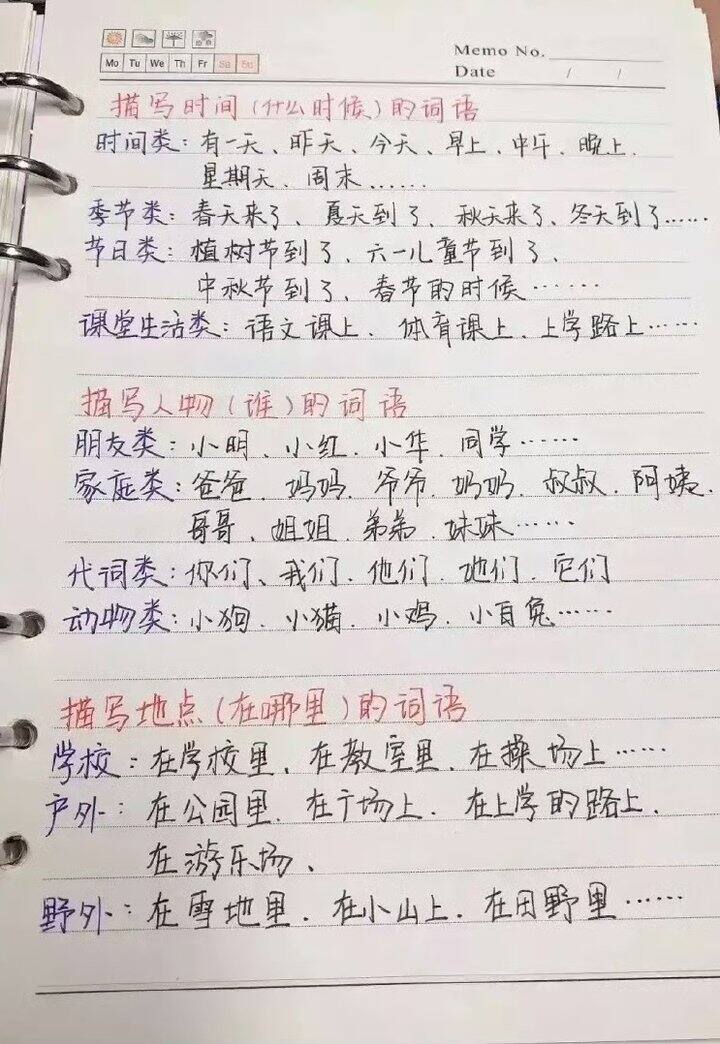 Memo No.
Mo Tu We Th Fr Sa Su
Date / /
描写时间(什么时候)的词语
时间类:有一天、昨天、今天、早上、中午、晚上、
星期天、周末……
季节类:春天来了、夏天到了、秋天来了、冬天到了……
节日类:植树节到了、六一儿童节到了、
中秋节到了、春节的时候……
课堂生活类:语文课上、体育课上、上学路上……
描写人物(谁)的词语
朋友类:小明、小红、小华、同学……
家庭类:爸爸、妈妈、爷爷、奶奶、叔叔、阿姨、
哥哥、姐姐、弟弟、妹妹……
代词类:你们、我们、他们、她们、它们
动物类:小狗、小猫、小鸡、小白兔……
描写地点(在哪里)的词语
学校:在学校里、在教室里、在操场上……
户外:在公园里、在广场上、在上学的路上、
在游乐场、
野外:在雪地里、在小山上、在田野里……